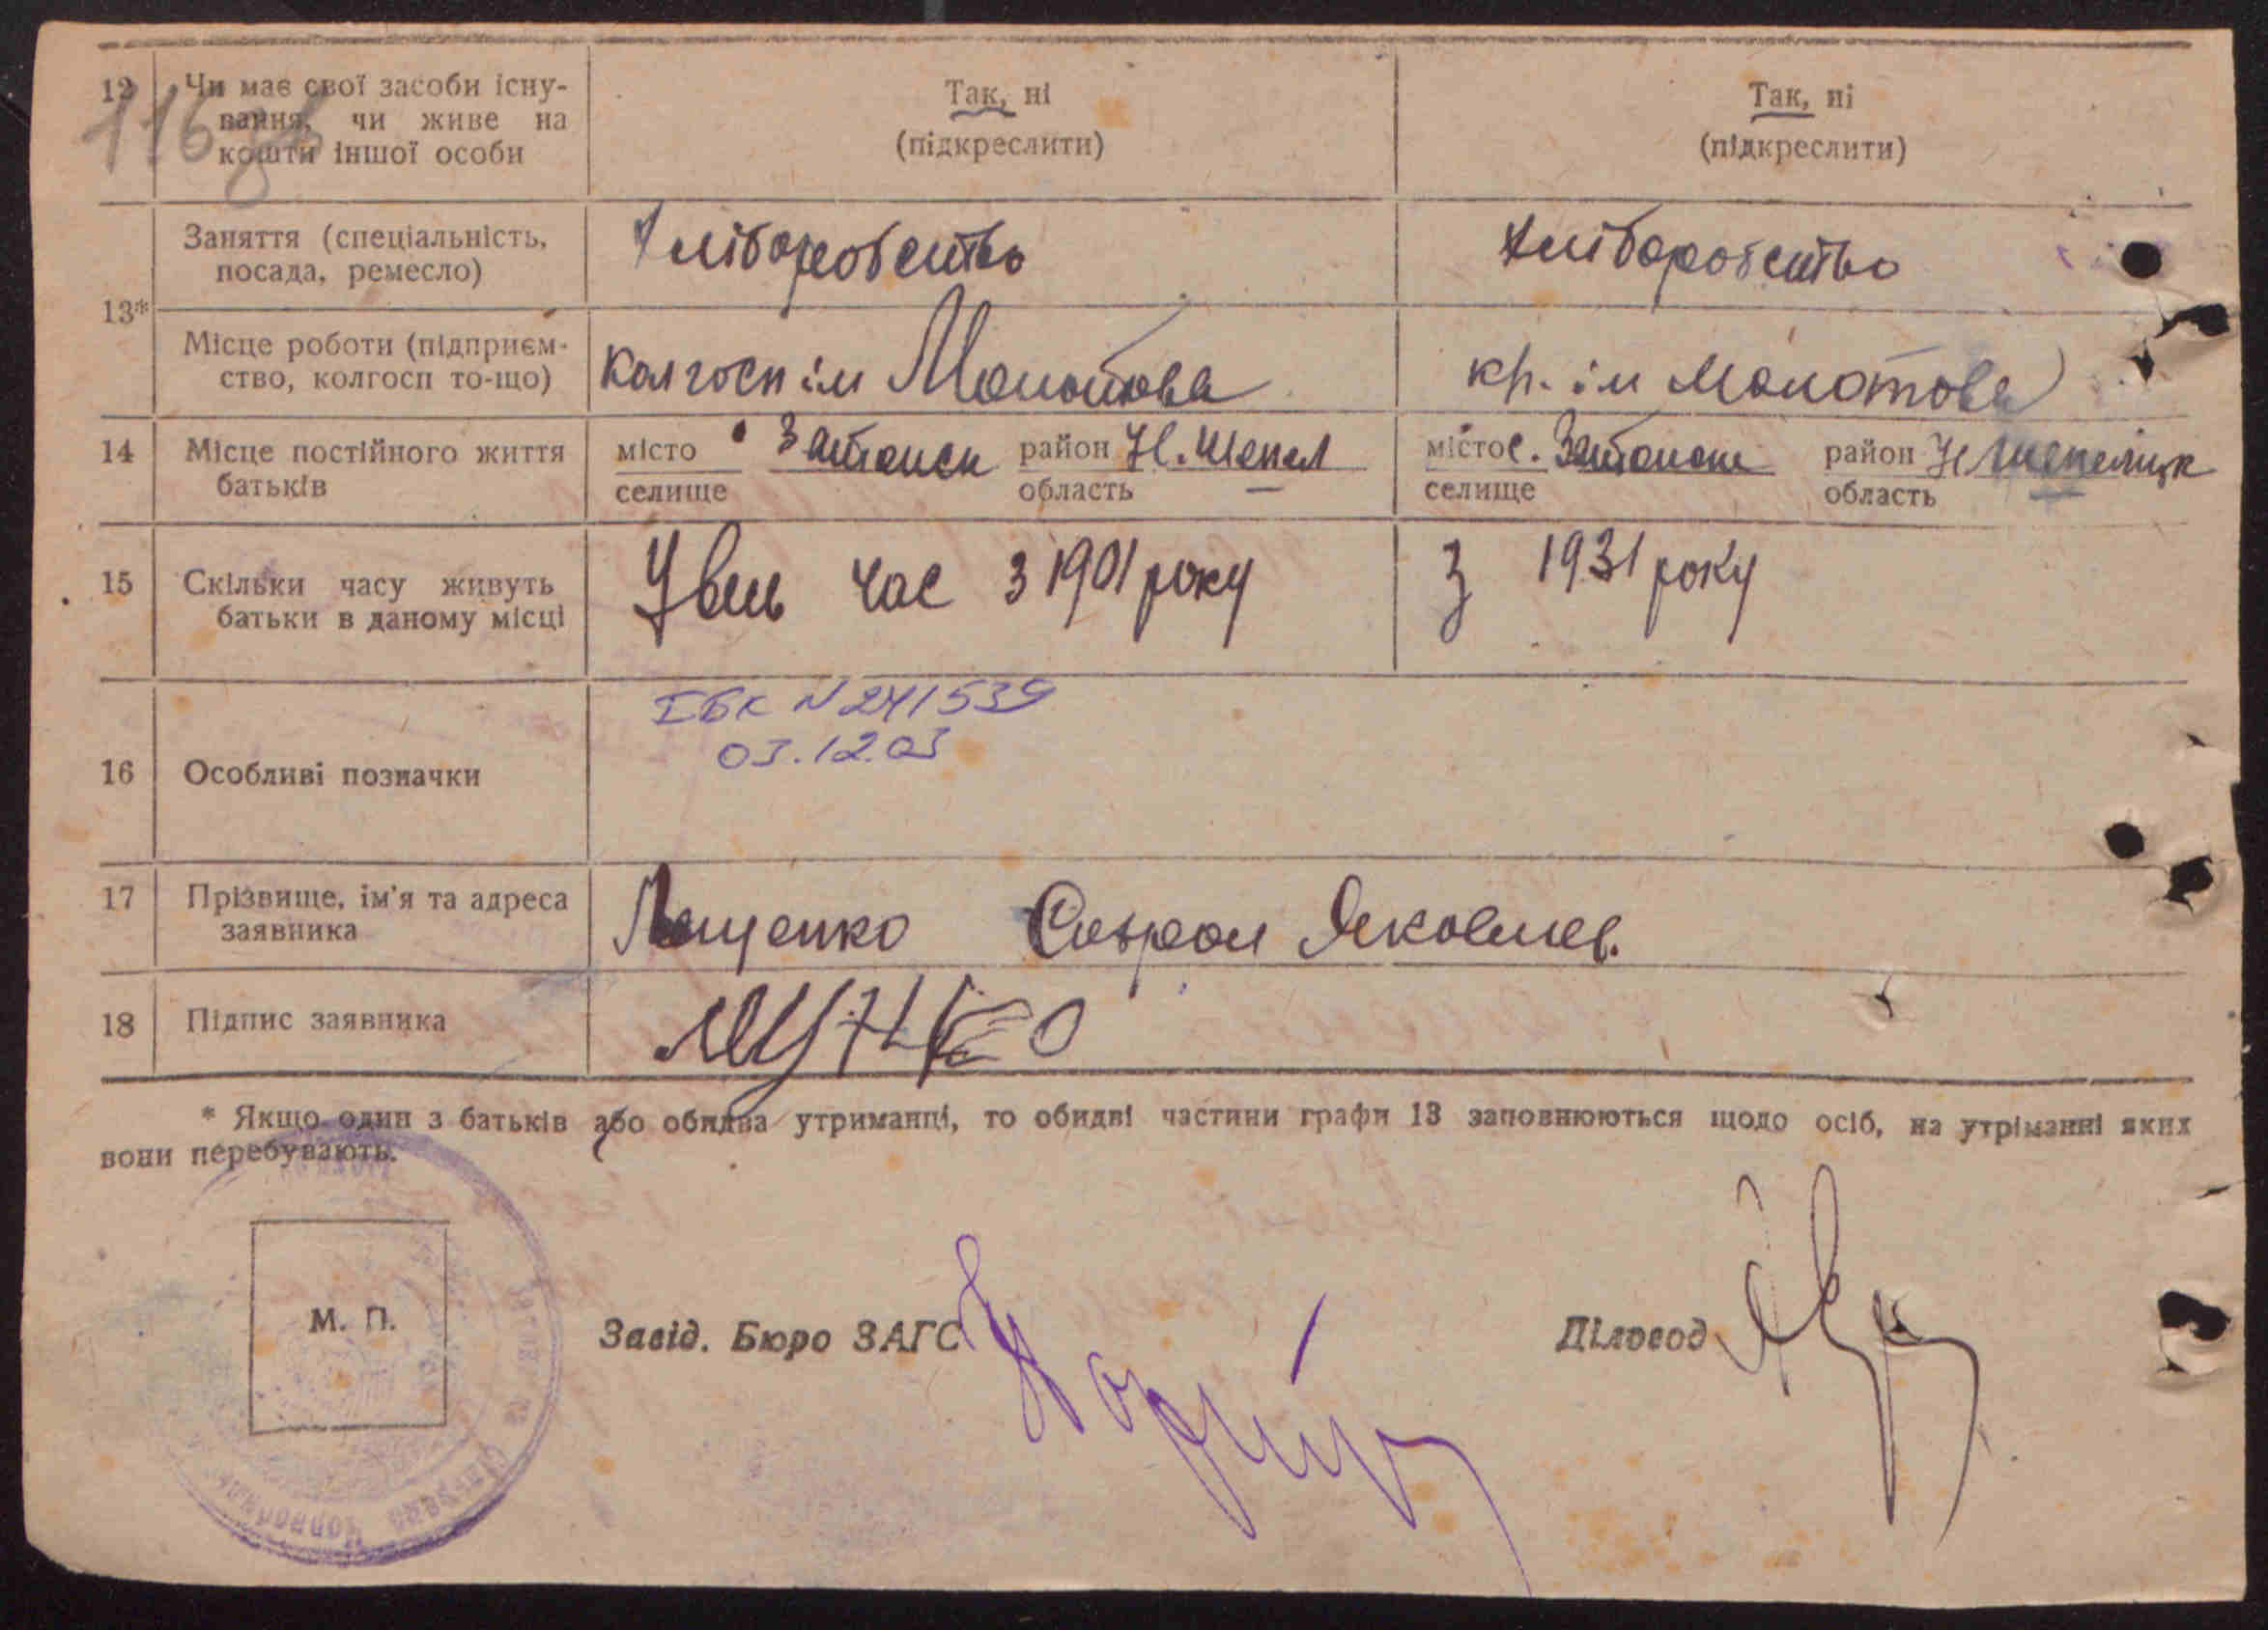 116 зв
12 Чи має свої засоби існу-
вання, чи живе на
кошти іншої особи
Так, ні
(підкреслити)
Так, ні
(підкреслити)
13*
Заняття (спеціальність,
посада, ремесло)
Хліборобство
Хліборобство
Місце роботи (підприєм-
ство, колгосп то-що)
Колгосп ім Молотова
кр. ім Молотова
14 Місце постійного життя
батьків
місто
селище
район Н. Шепел
область
місто с.
селище
район Н Шепеліцк
область
15 Скільки часу живуть
батьки в даному місці
Увесь час з 1901 року
З 1931 року
16 Особливі позначки
ІБК N 241539
03.12.03
17 Прізвище, ім'я та адреса
заявника
Лещенко Яковлев.
18 Підпис заявника
* Якщо один з батьків або обидва утриманці, то обидві частини графи 13 заповнюються щодо осіб, на утріманні яких
вони перебувають.
М. П.
Завід. Бюро ЗАГС
Діловод